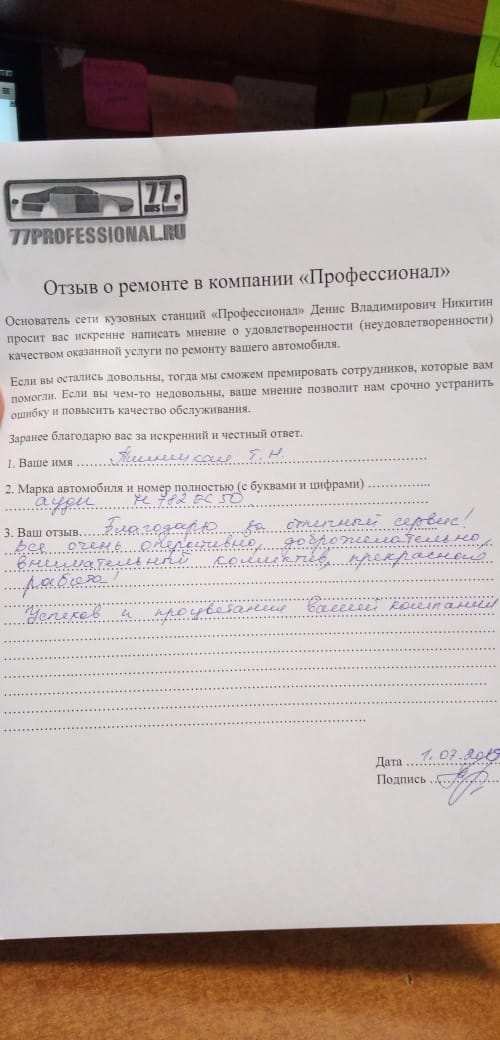 77
RUS
77PROFESSIONAL.RU
Отзыв о ремонте в компании «Профессионал»
Основатель сети кузовных станций «Профессионал» Денис Владимирович Никитин
просит вас искренне написать мнение о удовлетворенности (неудовлетворенности)
качеством оказанной услуги по ремонту вашего автомобиля.
Если вы остались довольны, тогда мы сможем премировать сотрудников, которые вам
помогли. Если вы чем-то недовольны, ваше мнение позволит нам срочно устранить
ошибку и повысить качество обслуживания.
Заранее благодарю вас за искренний и честный ответ.
1. Ваше имя Т. Н.
2. Марка автомобиля и номер полностью (с буквами и цифрами)
ауди М 782 ЕС 50
3. Ваш отзыв. Благодарю за отличный сервис!
Все очень оперативно, доброжелательно,
внимательный коллектив, прекрасная
работа!
Успехов и процветания Вашей компании
Дата 1.07.2019
Подпись